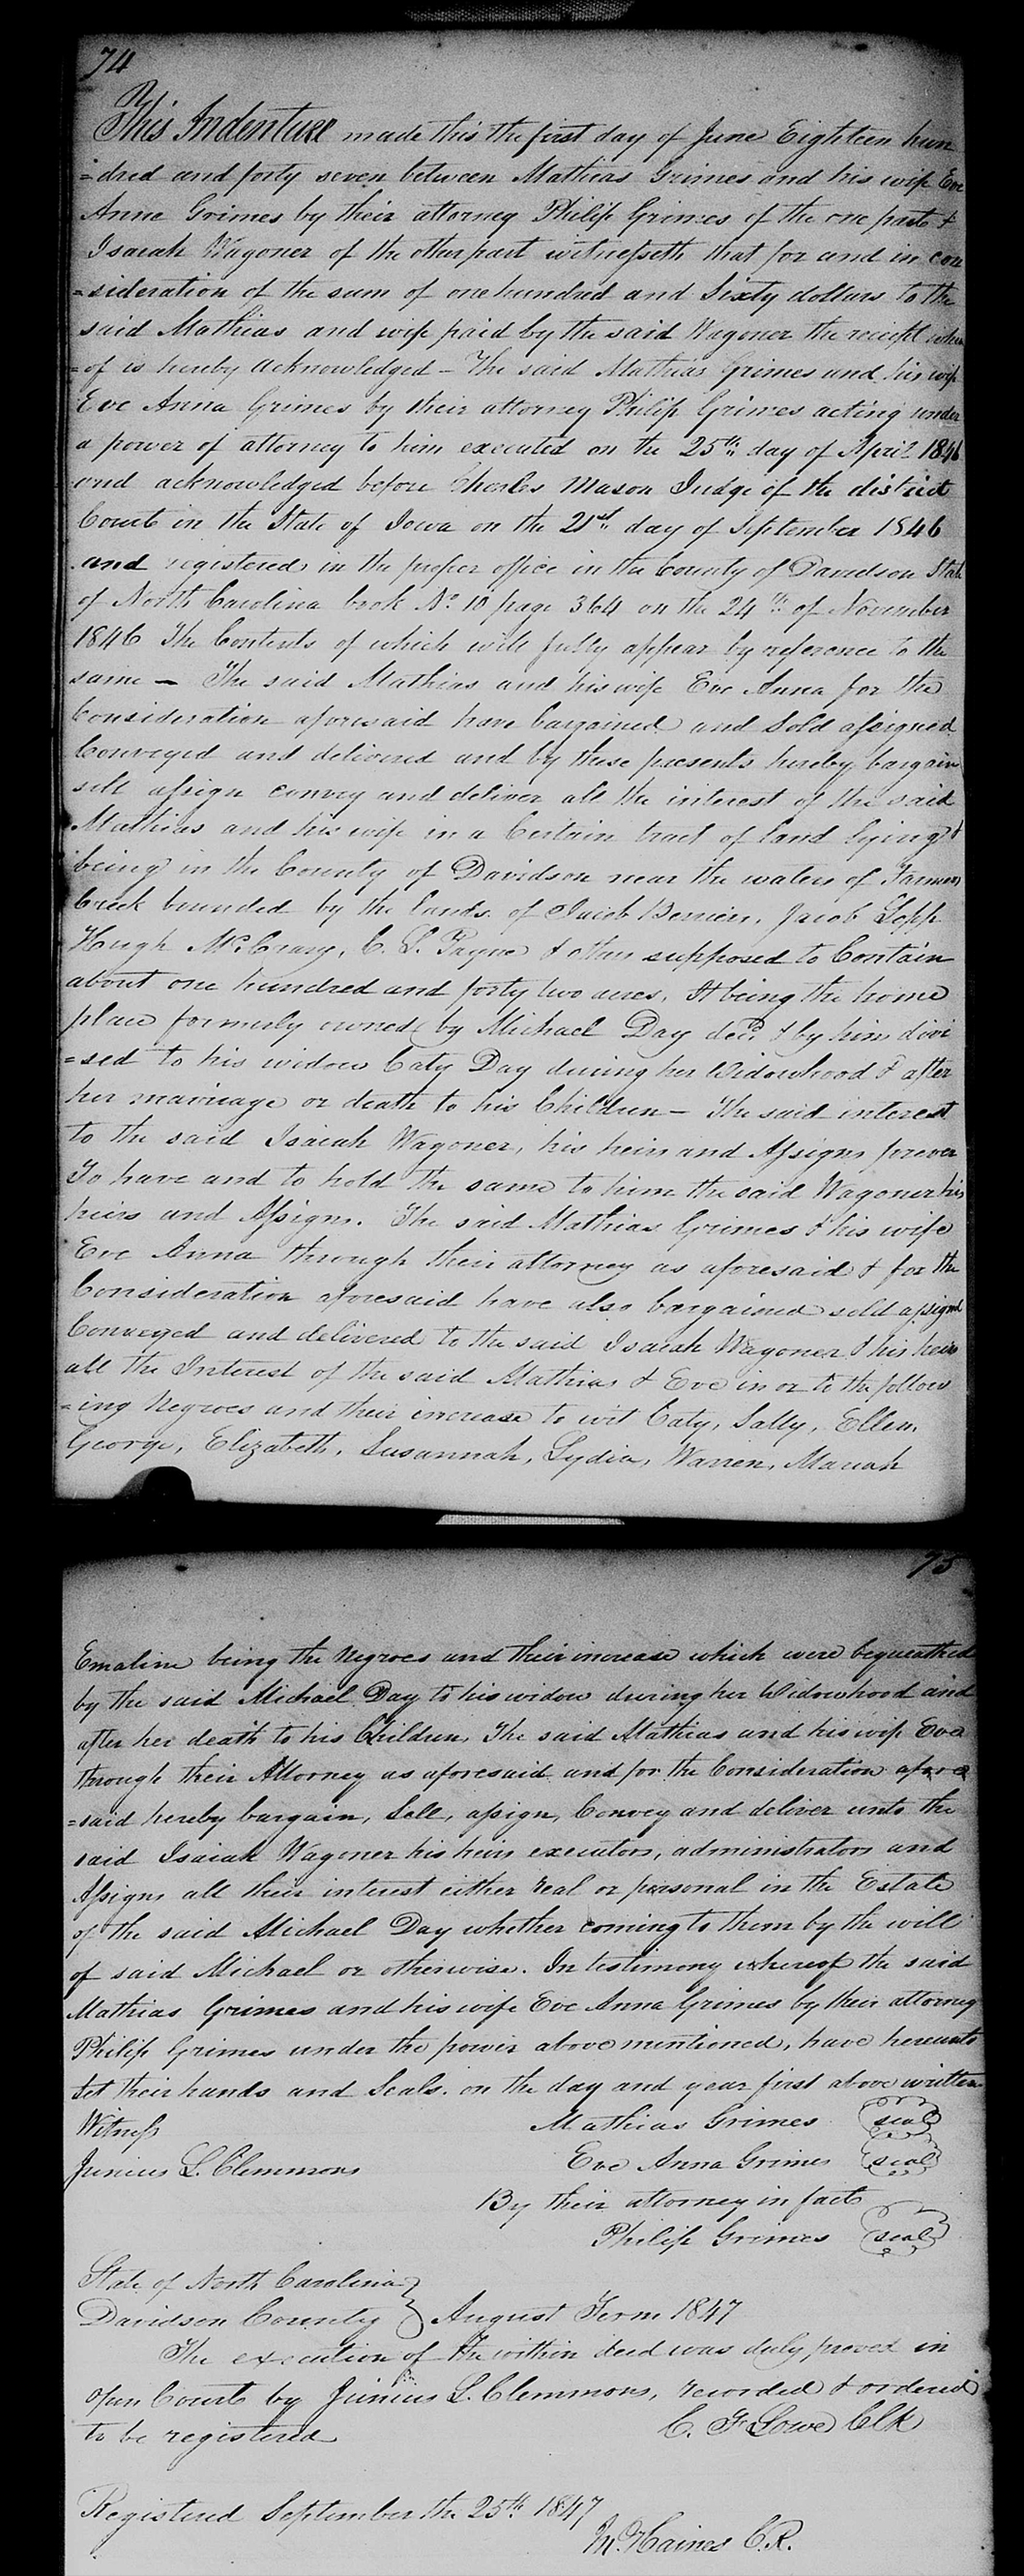 74
This Indenture made this the first day of June Eighteen hun
=dred and forty seven between Mathias Grimes and his wife Eve
Anne Grimes by their attorney Philip Grimes of the one part &
Isaiah Wagoner of the other part witnesseth that for and in con
=sideration of the sum of one hundred and Sixty dollars to the
said Mathias and wife paid by the said Wagoner the receipt where
=of is hereby acknowledged – The said Mathias Grimes and his wife
Eve Anna Grimes by their attorney Philip Grimes acting under
a power of attorney to him executed on the 25th day of April 1846
and acknowledged before Charles Mason Judge of the district
Court in the State of Iowa on the 21st day of September 1846
and registered in the proper office in the County of Davidson State
of North Carolina book No. 10 page 364 on the 24th of November
1846 The Contents of which will fully appear by reference to the
same – The said Mathias and his wife Eve Anna for the
Consideration aforesaid have bargained and Sold assigned
Conveyed and delivered and by these presents hereby bargain
sell assign convey and deliver all the interest of the said
Mathias and his wife in a Certain tract of land lying &
being in the County of Davidson near the waters of
Creek bounded by the lands of Jacob Berrier, Jacob Lopp
Hugh McCrary, C. L. Payne & others supposed to Contain
about one hundred and forty two acres. It being the home
place formerly owned by Michael Day decd. & by him divi
=sed to his widow Caty Day during her Widowhood & after
her marriage or death to his Children – The said interest
to the said Isaiah Wagoner, his heirs and Assigns forever
To have and to hold the same to him the said Wagoner his
heirs and Assigns. The said Mathias Grimes & his wife
Eve Anna through their attorney as aforesaid & for the
Consideration aforesaid have also bargained sold assigned
Conveyed and delivered to the said Isaiah Wagoner & his heirs
all the Interest of the said Mathias & Eve in or to the follow
=ing Negroes and their increase to wit Caty, Sally, Ellen,
George, Elizabeth, Susannah, Lydia, Warren, Mariah
75
Emaline being the Negroes and their increase which were bequeathed
by the said Michael Day to his widow during her Widowhood and
after her death to his Children, The said Mathias and his wife Eve
through their Attorney as aforesaid and for the Consideration afore
=said hereby bargain, Sell, assign, Convey and deliver unto the
said Isaiah Wagoner his heirs executors, administrators and
Assigns all their interest either real or personal in the Estate
of the said Michael Day whether coming to them by the will
of said Michael or otherwise. In testimony whereof the said
Mathias Grimes and his wife Eve Anna Grimes by their attorney
Philip Grimes under the power above mentioned, have hereunto
Set their hands and Seals. on the day and year first above written
Witness Mathias Grimes seal
Junius L. Clemmons Eve Anna Grimes seal
By their attorney in fact
Philip Grimes seal
State of North Carolina
Davidson County } August Term 1847
The execution of the within deed was duly proved in
open Court by Junius L. Clemmons, recorded & ordered
to be registered C. F. Lowe Clk
Registered September the 25th 1847
M. Haines C.R.